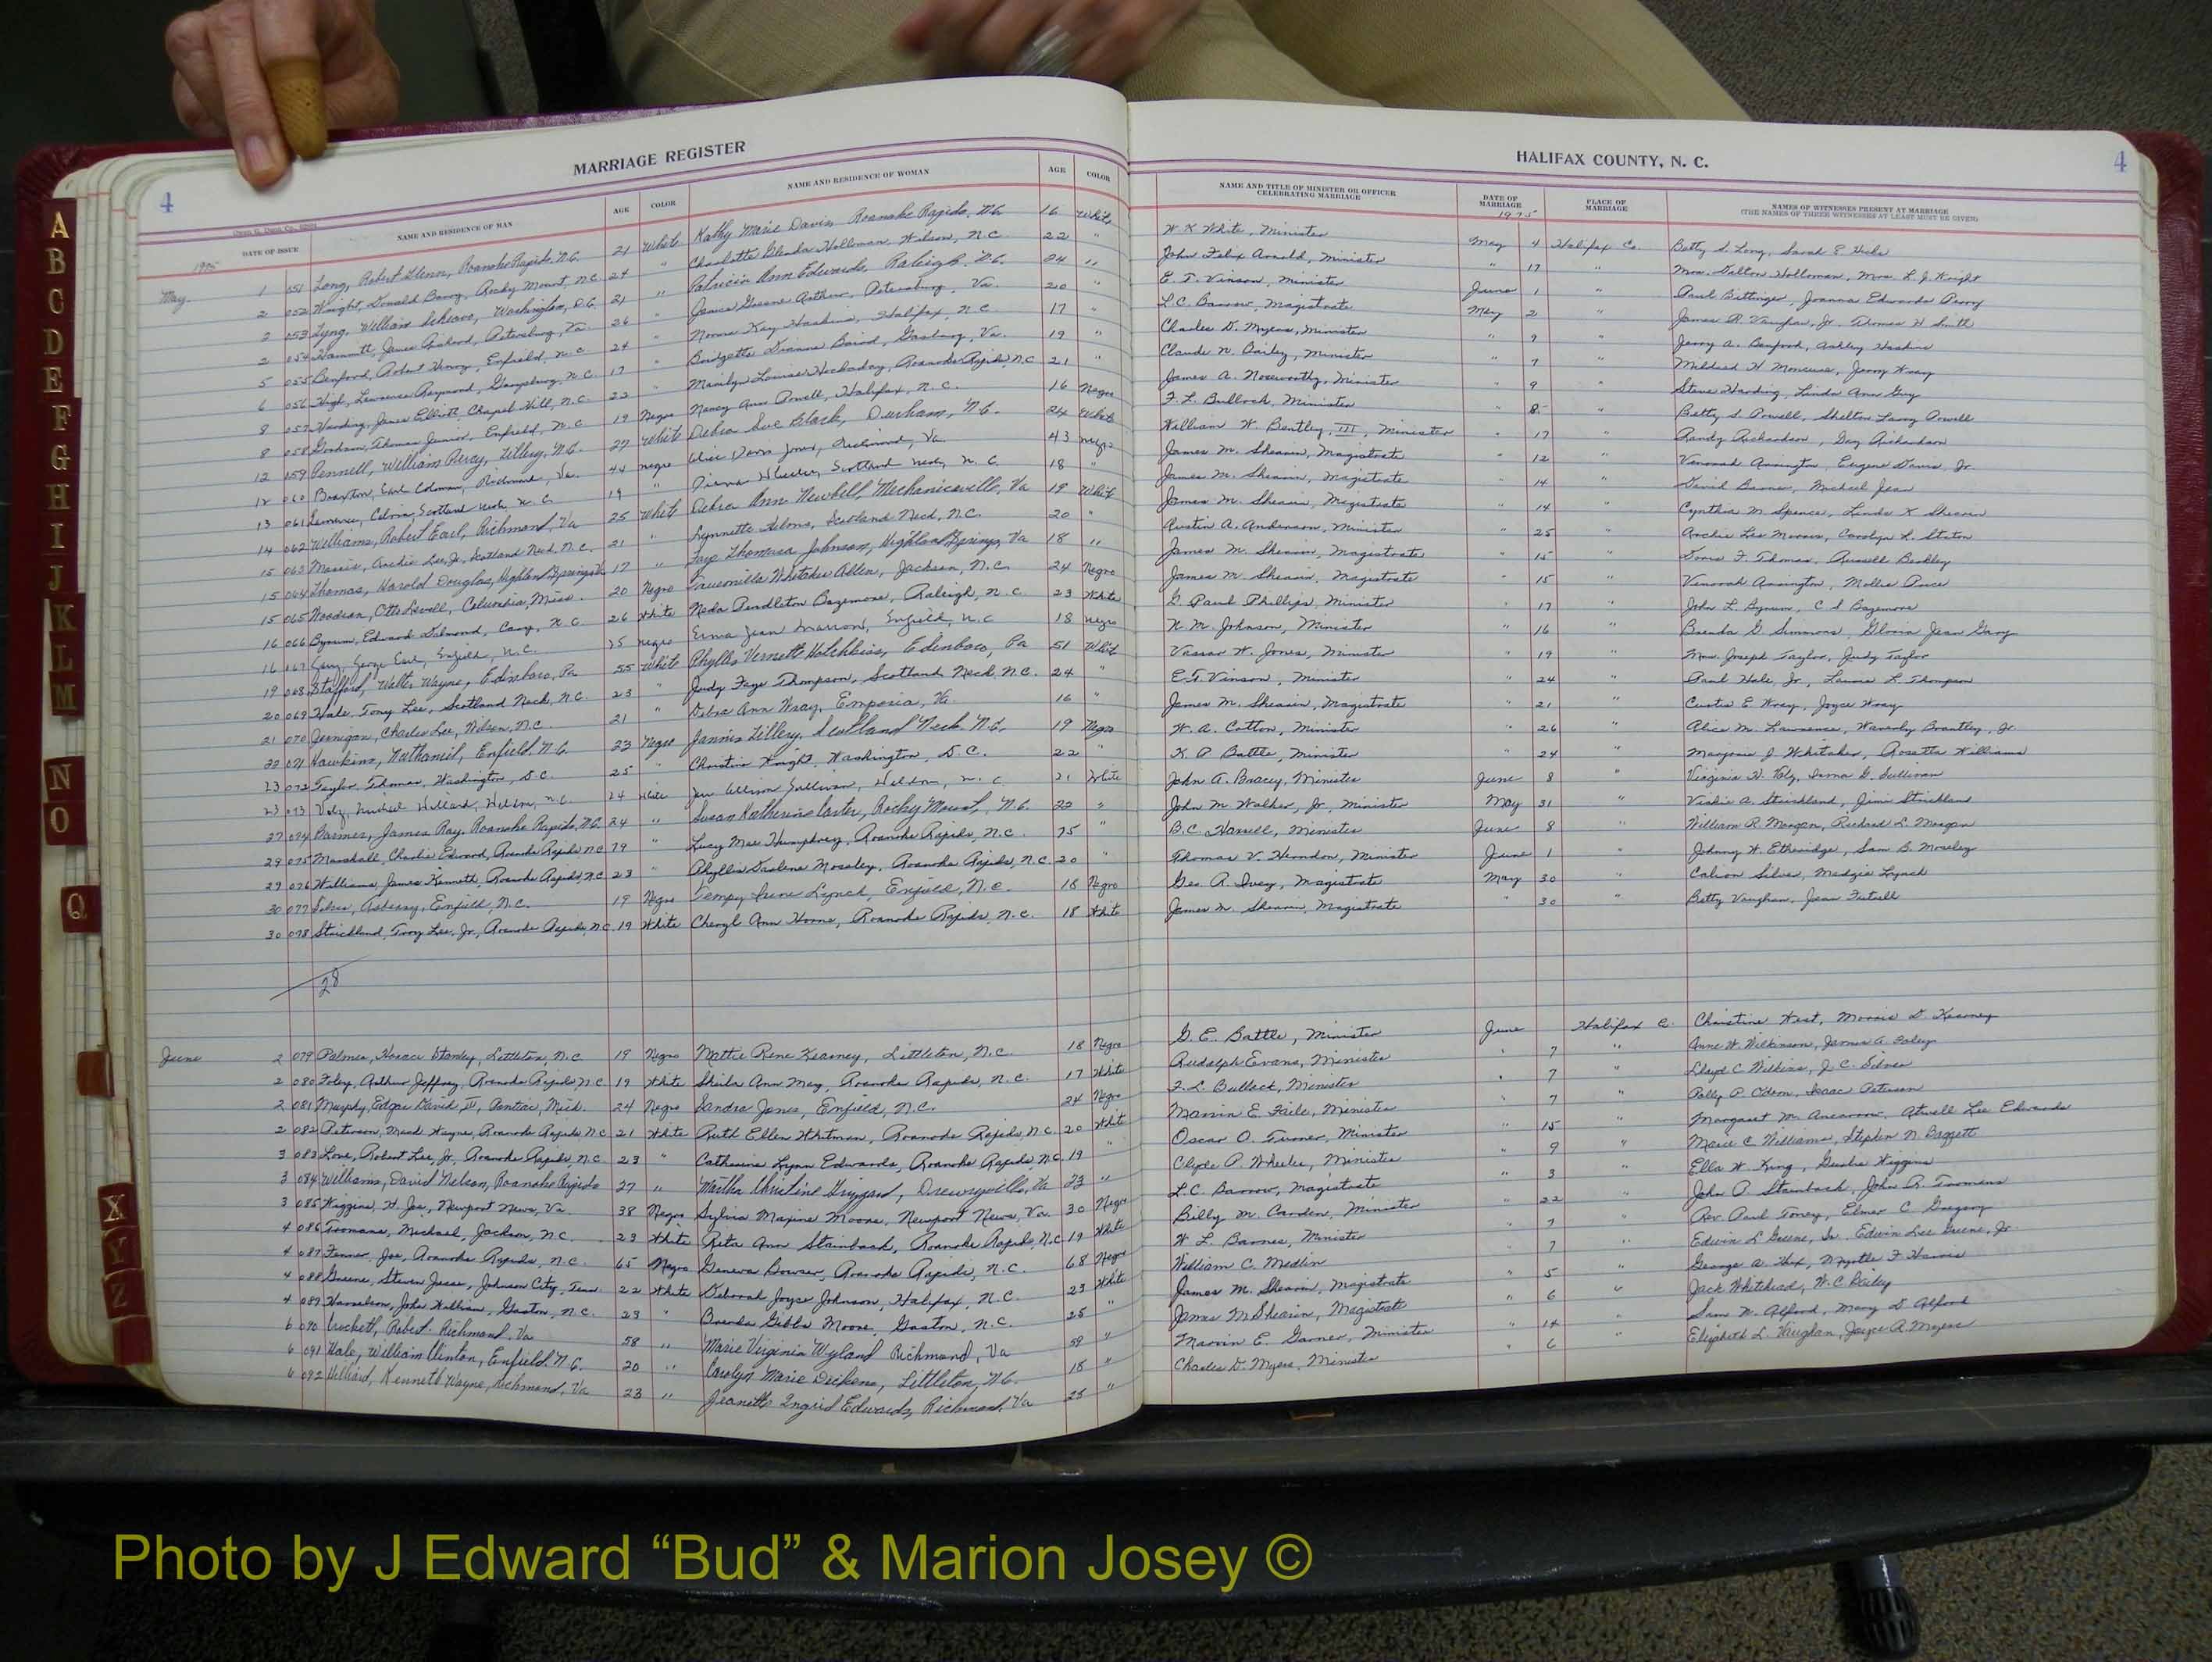 MARRIAGE REGISTER
HALIFAX COUNTY, N. C.
4
4
DATE OF ISSUE NAME AND RESIDENCE OF MAN AGE COLOR NAME AND RESIDENCE OF WOMAN AGE COLOR NAME AND TITLE OF MINISTER OR OFFICER CELEBRATING MARRIAGE DATE OF MARRIAGE PLACE OF MARRIAGE NAMES OF WITNESSES PRESENT AT MARRIAGE (THE NAMES OF THREE WITNESSES AT LEAST MUST BE GIVEN)
1975
May 1 051 Long, Robert Glenn, Roanoke Rapids, N.C. 21 White Kathy Marie Davis, Roanoke Rapids, N.C. 16 White W K White, Minister May 4 Halifax Co. Betty S. Long, Sarah E
2 052 Wright, Donald Barry, Rocky Mount, N.C. 24 " Charlotte Glenda Holloman, Wilson, N.C. 22 " John Felix Arnold, Minister " 17 " Mrs. Dalton Holloman, Mrs. L. J. Wright
2 053 William Washington, D.C. 21 " Patricia Ann Edwards, Raleigh, N.C. 24 " E. T. Vinson, Minister June 1 " Paul Bittinger, Joanna Edwards Perry
2 054 James Petersburg, Va. 26 " Janice Greene Arthur, Petersburg, Va. 20 " L.C. Barrow, Magistrate May 2 " James R. Vaughan, Jr. Thomas H Smith
5 055 Benford, Robert Henry, Enfield, N.C. 24 " Kay Haskins, Halifax, N.C. 17 " Charles D. Myers, Minister " 9 " Jerry A. Benford, Ashley Haskins
6 056 High, Lawrence Raymond, Garysburg, N.C. 17 " Bridgette Dianne Baird, Gasburg, Va. 19 " Claude N. Bailey, Minister " 7 " Mildred H. Moncure, Jerry Wray
8 057 Harding, James Elliott, Chapel Hill, N.C. 22 " Marilyn Louise Hockaday, Roanoke Rapids, N.C. 21 " James A. Noseworthy, Minister " 9 " Steve Harding, Linda Ann Guy
8 058 Gorham, Thomas Junior, Enfield, N.C. 19 Negro Nancy Ann Powell, Halifax, N.C. 16 Negro F. L. Bullock, Minister " 8 " Betty S. Powell, Shelton Leroy Powell
12 059 Pennell, William Percy, Tillery, N.C. 27 White Debra Sue Black, Durham, N.C. 24 White William W. Bentley, III, Minister " 17 " Randy Richardson, Gay Richardson
12 060 Braxton, Earl Colman, Richmond, Va. 44 Negro Alice Davis Jones, Richmond, Va. 43 Negro James M. Shearin, Magistrate " 12 " Venorah Arrington, Eugene Davis, Jr.
13 061 Lawrence, Calvin, Scotland Neck, N.C. 19 " Wheeler, Scotland Neck, N.C. 18 " James M. Shearin, Magistrate " 14 " David Barnes, Michael Jean
14 062 Williams, Robert Earl, Richmond, Va 25 White Debra Ann Newbell, Mechanicsville, Va 19 White James M. Shearin, Magistrate " 14 " Cynthia M. Spence, Linda K Shearin
15 063 Morris, Archie Lee, Jr., Scotland Neck, N.C. 21 " Lynnette Adams, Scotland Neck, N.C. 20 " Austin A. Anderson, Minister " 25 " Archie Lee Morris, Carolyn L. Staton
15 064 Thomas, Harold Douglas, Highland Springs Va 17 " Faye Thomasa Johnson, Highland Springs, Va 18 " James M. Shearin, Magistrate " 15 " F. Thomas, Russell Beckley
15 065 Woodson, Otto Lavell, Columbia, Miss. 20 Negro Whitaker Allen, Jackson, N.C. 24 Negro James M. Shearin, Magistrate " 15 " Venorah Arrington, Mollie Price
16 066 Bynum, Edward Desmond, Cary, N.C. 26 White Neda Pendleton Bazemore, Raleigh, N.C. 23 White G. Paul Phillips, Minister " 17 " John L. Bynum, C S Bazemore
16 067 Gary, George Earl, Enfield, N.C. 25 Negro Erma Jean Marrow, Enfield, N.C 18 Negro N. M. Johnson, Minister " 16 " Brenda G. Simmons, Gloria Jean Gary
19 068 Stafford, Walter Wayne, Edinboro, Pa 55 White Phyllis Vernett Hotchkiss, Edinboro, Pa 51 White W. Jones, Minister " 19 " Mrs. Joseph Taylor, Judy Taylor
20 069 Hale, Tony Lee, Scotland Neck, N.C. 23 " Judy Faye Thompson, Scotland Neck, N.C. 24 " E T Vinson, Minister " 24 " Paul Hale, Jr., L. Thompson
21 070 Jernigan, Charles Lee, Wilson, N.C. 21 " Debra Ann Wray, Emporia, Va. 16 " James M. Shearin, Magistrate " 21 " Curtis E Wray, Joyce Wray
22 071 Hawkins, Nathaniel, Enfield, N.C. 23 Negro Jannie Tillery, Scotland Neck, N.C. 19 Negro W. A. Cotton, Minister " 26 " Alice M. Lawrence, Waverly Brantley, Jr.
23 072 Taylor, Thomas, Washington, D.C. 25 " Christine Knight, Washington, D.C. 22 " K P Battle, Minister " 24 " Marjorie J. Whitaker, Rosetta Williams
23 073 Michael Willard, Weldon, N.C. 24 White Jan Allison Sullivan, Weldon, N.C. 21 White John A. Bracey, Minister June 8 " Virginia H. G. Sullivan
27 074 Parmer, James Ray, Roanoke Rapids, N.C. 24 " Susan Katherine Carter, Rocky Mount, N.C. 22 " John M Walker, Jr, Minister May 31 " Vickie A. Strickland, Jimi Strickland
29 075 Marshall, Charlie Edward, Roanoke Rapids, N.C. 79 " Lucy Mae Humphrey, Roanoke Rapids, N.C. 75 " B.C. Harrell, Minister June 8 " William R. Morgan, Richard L Morgan
29 076 Williams, James Kenneth, Roanoke Rapids, N.C. 23 " Phyllis Darlene Moseley, Roanoke Rapids, N.C. 20 " Thomas V. Herndon, Minister June 1 " Johnny W. Etheridge, Sam B. Moseley
30 077 Silver, Asbury, Enfield, N.C. 19 Negro Tempy Irene Lynch, Enfield, N.C. 18 Negro Geo. R. Ivey, Magistrate May 30 " Calvin Silver, Madgie Lynch
30 078 Strickland, Troy Lee, Jr, Roanoke Rapids, N.C. 19 White Cheryl Ann Horne, Roanoke Rapids, N.C. 18 White James M. Shearin, Magistrate " 30 " Betty Vaughan, Jean
28
June 2 079 Palmer, Horace Stanley, Littleton, N.C. 19 Negro Mattie Rene Kearney, Littleton, N.C. 18 Negro G. E. Battle, Minister June Halifax C. Christine West, Morris D. Kearney
2 080 Foley, Arthur Jeffrey, Roanoke Rapids N.C. 19 White Sheila Ann May, Roanoke Rapids, N.C. 17 White Rudolph Evans, Minister " 7 " Anne W. Wilkinson, James A. Foley
2 081 Murphy, Edgar David IV, Pontiac, Mich. 24 Negro Sandra Jones, Enfield, N.C. 24 Negro F. L. Bullock, Minister " 7 " Lloyd C Wilkins, J. C. Silver
2 082 Peterson, Mark Wayne, Roanoke Rapids N.C. 21 White Ruth Ellen Whitman, Roanoke Rapids, N.C. 20 White Marvin E. Faile, Minister " 7 " Polly P. Odom, Isaac Peterson
3 083 Love, Robert Lee, Jr., Roanoke Rapids, N.C. 23 " Catherine Lynn Edwards, Roanoke Rapids, N.C. 19 " Oscar O. Turner, Minister " 15 " Margaret M. Atwell Lee Edwards
3 084 Williams, David Nelson, Roanoke Rapids 27 " Martha Christine Grizzard, Drewryville, Va 23 " Clyde P. Wheeler, Minister " 9 " Marie C Williams, Stephen N. Baggett
3 085 Wiggins, W. Joe, Newport News, Va. 38 Negro Sylvia Maxine Moore, Newport News, Va 30 Negro L.C. Barrow, Magistrate " 3 " Ella W. King, Wiggins
4 086 Toomans, Michael, Jackson, N.C. 23 White Rita Ann Stainback, Roanoke Rapids, N.C. 19 White Billy M. Carden, Minister " 22 " John P Stainback, John R. Toomans
4 087 Fenner, Joe, Roanoke Rapids, N.C. 65 Negro Geneva Bowser, Roanoke Rapids, N.C. 68 Negro W. L. Barnes, Minister " 7 " Rev. Paul Toney, Elmer C Gregory
4 088 Greene, Steven Jesse, Johnson City, Tenn 22 White Deborah Joyce Johnson, Halifax, N.C. 23 White William C. Medlin " 7 " Edwin L Greene, Sr. Edwin Lee Greene, Jr.
4 089 Harrelson, John William, Gaston, N.C. 23 " Brenda Gibbs Moore, Gaston, N.C. 25 " James M. Shearin, Magistrate " 5 " George A. Hux, Myrtle F Harris
6 090 Crockett, Robert, Richmond, Va 58 " Marie Virginia Wyland Richmond, Va 59 " James M Shearin, Magistrate " 6 " Jack Whitehead, W. C Bailey
6 091 Hale, William Clinton, Enfield, N.C. 20 " Carolyn Marie Dickens, Littleton, N.C. 18 " Marvin E. Garner, Minister " 14 " Sam W. Alford, Mary S Alford
6 092 Hilliard, Kenneth Wayne, Richmond, Va 23 " Jeanette Ingrid Edwards, Richmond, Va 25 " Charles D. Myers, Minister " 6 " Elizabeth L. Vaughan, Joyce R. Myers
A
B
C
D
E
F
G
H
I
J
K
L
M
N
O
Q
X
Y
Z
Photo by J Edward “Bud” & Marion Josey ©